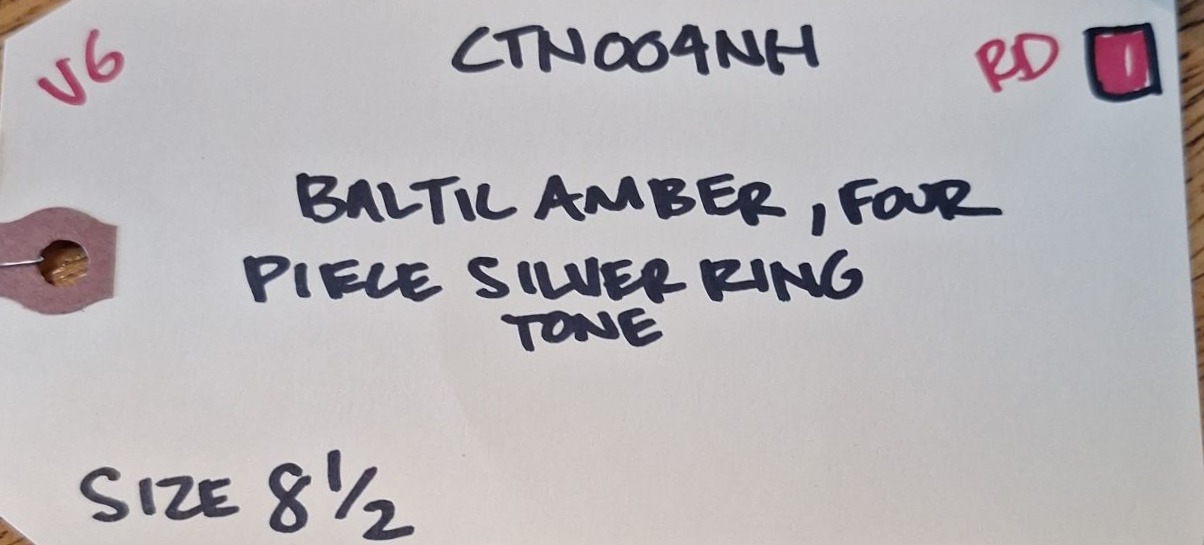 V6 CTN004NH RD
BALTIC AMBER, FOUR
PIECE SILVER RING
TONE
SIZE 8 1/2